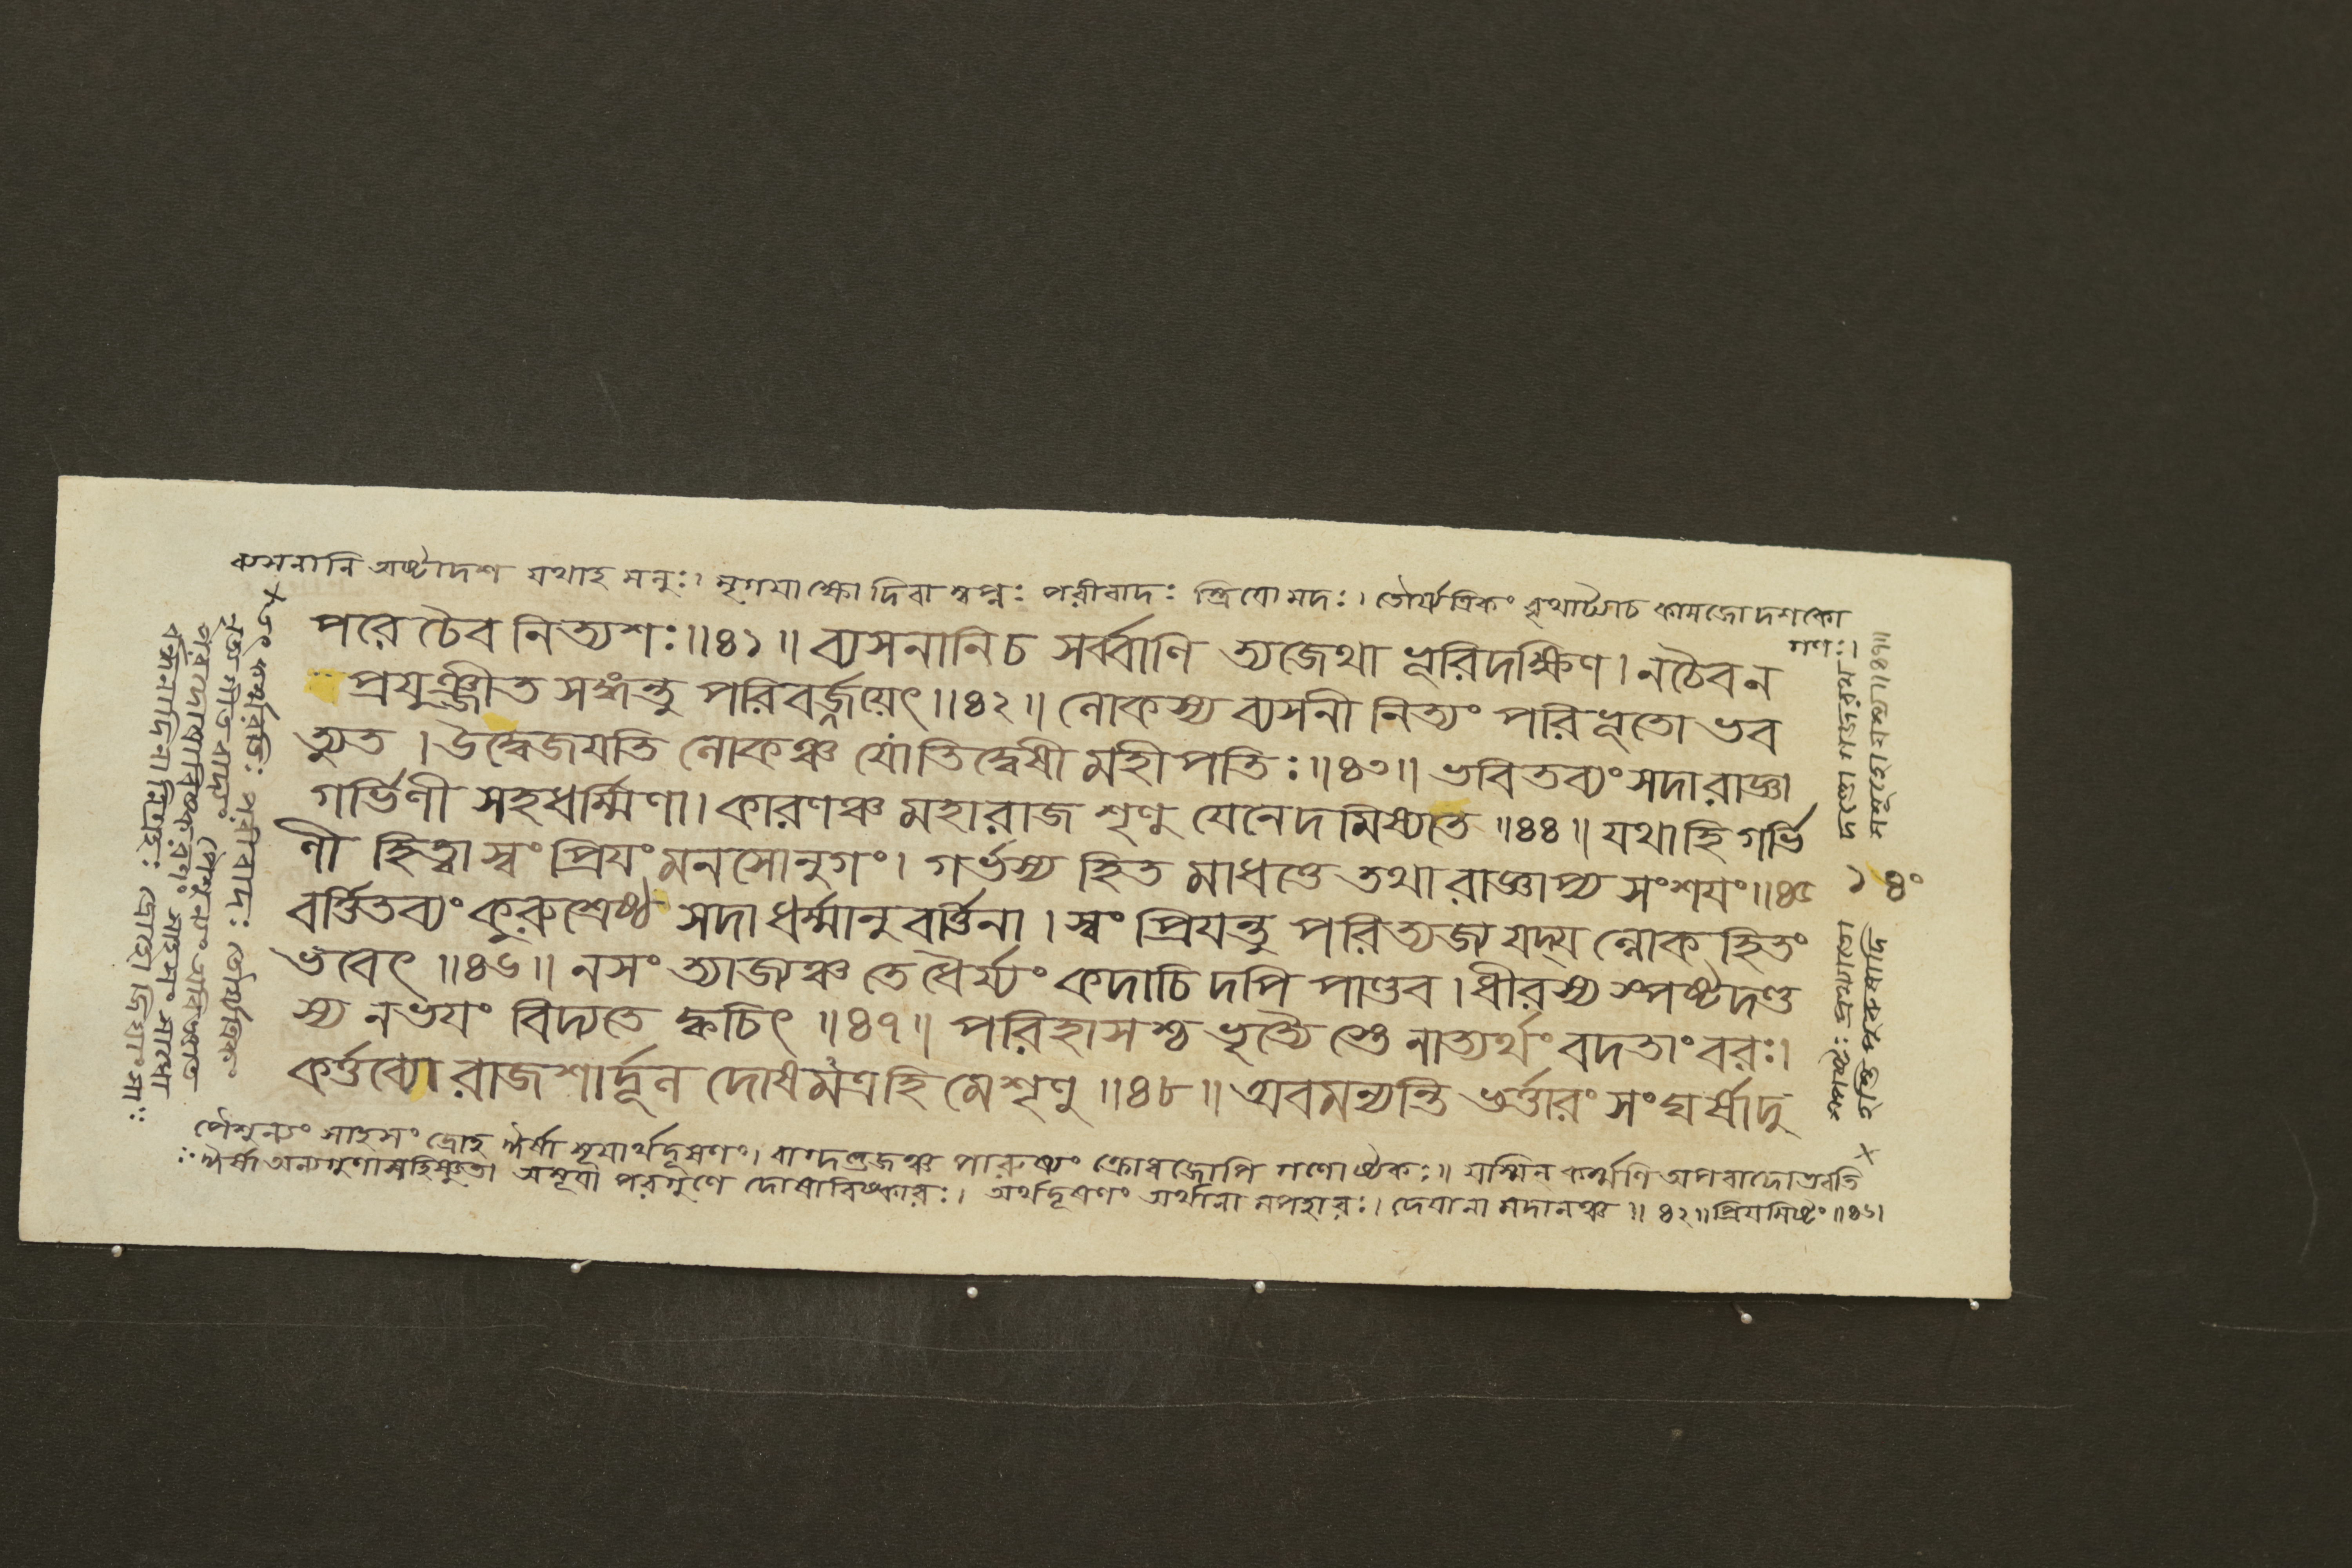 ব্যসনানি অষ্টাদশ যথাহ মনুঃ। মৃগযাক্ষো দিবাস্বপ্নঃ পরীবাদঃ স্ত্রিযো মদঃ। তৌর্য্যত্রিকং বৃথাট্যাচ কামজো দশকো
গণঃ।
পরে চৈব নিত্যশঃ॥৪১॥ ব্যসনানিচ সর্ব্বাণি ত্যজেথা ভূরিদক্ষিণ। নচৈব ন
প্রযুঞ্জীত সঙ্গন্তু পরিবর্জ্জয়েৎ॥৪২॥ লোকস্য ব্যসনী নিত্যং পরিভূতো ভব
ত্যুত। উদ্বেজযতি লোকঞ্চ যোতিদ্বেষী মহীপতিঃ॥৪৩॥ ভবিতব্যং সদা রাজ্ঞা
গর্ভিণী সহধর্ম্মিণা। কারণঞ্চ মহারাজ শৃণু যেনেদমিষ্যতে॥৪৪॥ যথাহি গর্ভি
ণী হিত্বা স্বং প্রিযং মনসোনুগং। গর্ভস্য হিতমাধত্তে তথা রাজ্ঞাপ্য সংশযং॥৪৫
বর্ত্তিতব্যং কুরুশ্রেষ্ঠ সদা ধর্ম্মানুবর্ত্তিনা। স্বং প্রিযন্তু পরিত্যজ্য যদ্য ল্লোকহিতং
ভবেৎ॥৪৬॥ নসং ত্যাজ্যঞ্চ তে ধৈর্য্যং কদাচিদপি পাণ্ডব। ধীরস্য স্পষ্টদণ্ড
স্য নভযং বিদ্যতে ক্বচিৎ॥৪৭॥ পরিহাসশ্চ ভৃত্যৈ স্তে নাত্যর্থং বদতাং বরঃ।
কর্ত্তব্যো রাজশার্দ্দূল দোষমত্রহি মে শৃণু॥৪৮॥ অবমন্যন্তি ভর্ত্তারং সংঘর্ষাদু
পৈশুন্যং সাহসং দ্রোহ ঈর্ষা সূযার্থদূষণং। বাগ্দণ্ডজঞ্চ পারুষ্যং ক্রোধজোপি গণোষ্টকঃ॥ যস্মিন্ কর্ম্মণি অপবাদো ভবতি
ঈর্ষা অন্যগুণাসহিষ্ণুতা অসূযা পরগুণে দোষাবিষ্কারঃ। অর্থদূষণং অর্থানা মপহারঃ। দেযানা মদানঞ্চ॥৪২॥ প্রিযমিষ্টং॥৪৬।
পরীবাদঃ তৌর্য্যত্রিকং
নৃত্য গীত বাদ্যং পৈশুন্যং অবিজ্ঞাত
পরদোষাবিষ্করণং সাহসং সাধো
র্বন্ধনাদিনা নিগ্রহঃ দ্রোহো জিঘাংসা
স্পষ্টঃ
১ ৪০